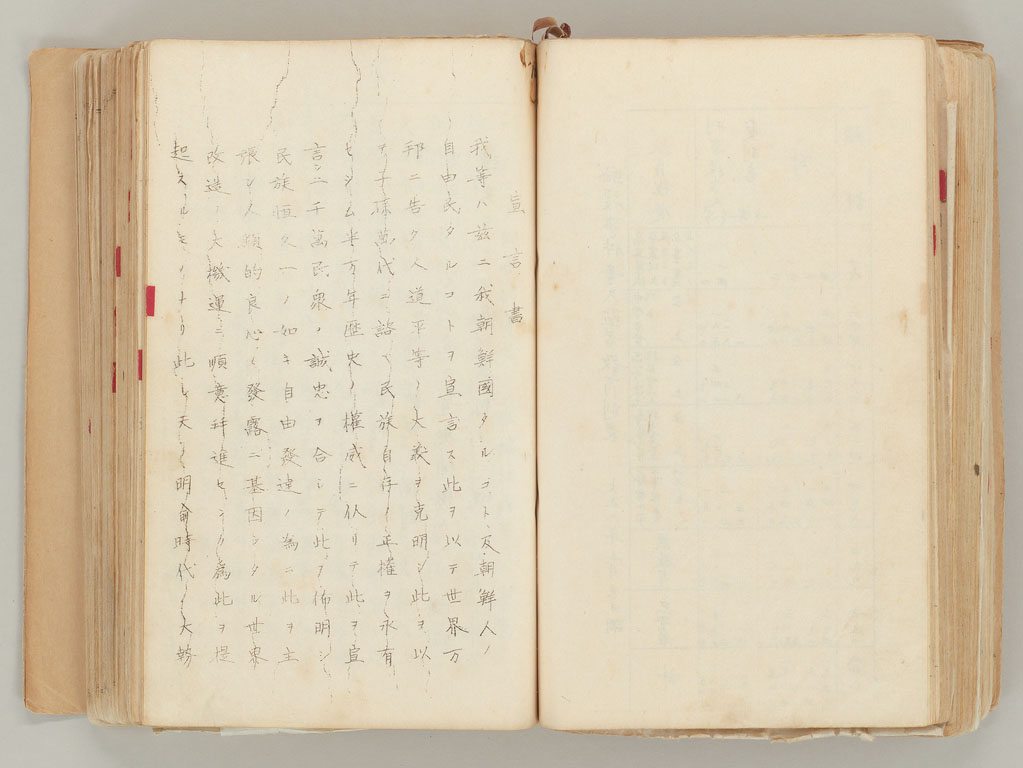 宣言書
我等ハ玆ニ我朝鮮國タルコト及朝鮮人ノ
自由民タルコトヲ宣言ス此ヲ以テ世界万
邦ニ告ケ人道平等ノ大義ヲ克明シ此ヲ以
テ子孫萬代ニ誥ヘ民族自存ノ正權ヲ永有
セシム半万年歴史ノ權威ニ仗リテ此ヲ宣
言二千萬民衆ノ誠忠ヲ合シテ此ヲ佈明シ
民族恒久一ノ如キ自由発達ノ為ニ此ヲ主
張シ人類的良心ノ發露ニ基因シタル世界
改造ノ大機運ニ順應并進センカ為此ヲ提
起スルモノトリ此レ天ノ明命時代ノ大勢